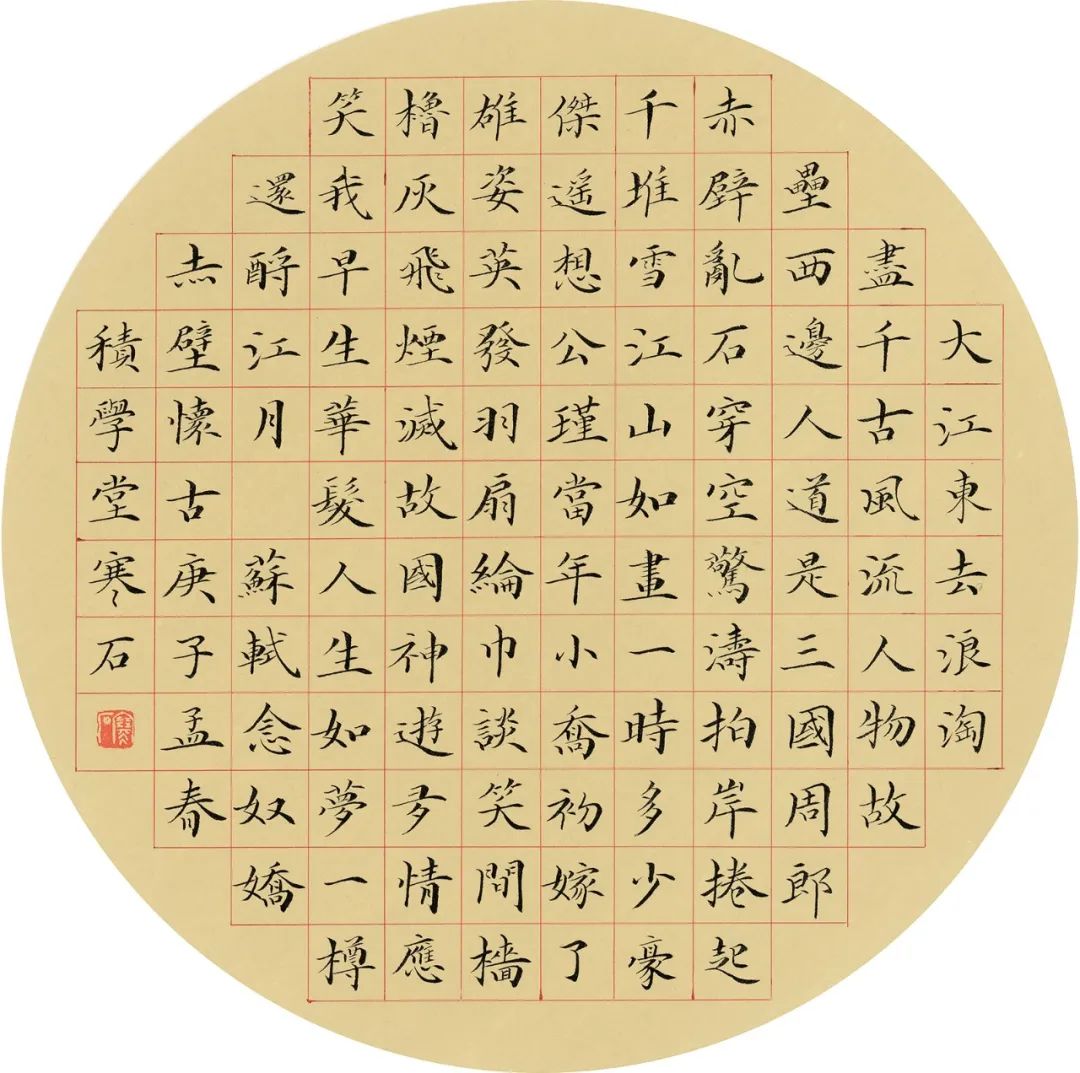 大江東去浪淘
盡千古風流人物故
壘西邊人道是三國周郎
赤壁亂石穿空驚濤拍岸捲起
千堆雪江山如畫一時多少豪
傑遥想公瑾當年小喬初嫁了
雄姿英發羽扇綸巾談笑間檣
櫓灰飛煙滅故國神遊多情應
笑我早生華髮人生如夢一樽
還酹江月 蘇軾念奴嬌
赤壁懷古庚子孟春
積學堂寒石